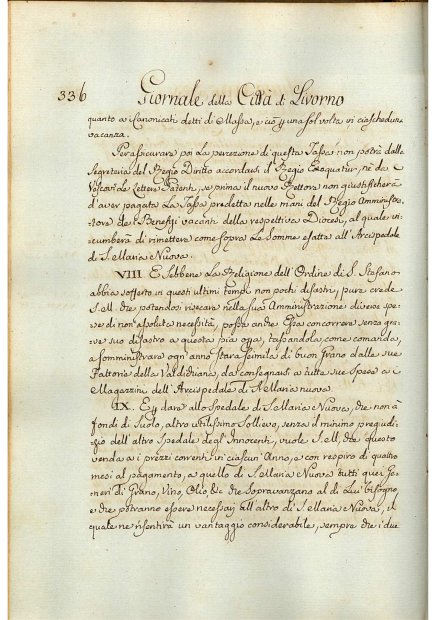 336 Giornale della Città di Livorno
quanto a Canonicati detti di Massa, e ciò p una sol volta in ciascheduna
vacanza.
Per assicurare poi la percezione di questa Tassa non potrà dalla
Segreteria del Regio Diritto accordarsi il Regio Exequatur, nè da
Vescovi le Lettere Patenti, se prima il nuovo Rettore non giustificherà
d'aver pagata la Tassa predetta nelle mani del Regio Amministra-
tore de Benefizj vacanti della respettiva Diocesi, al quale in-
cumberà di rimettere come sopra le Somme esatte all'Arcispedale
di S. Maria Nuova.
VIII E sebbene la Religione dell'Ordine di S. Stefano
abbia sofferto in questi ultimi tempi non pochi disastri, pure crede
S. A. R. che potendosi risecare nella sua Amministrazione diverse spe-
se di non assoluta necessità, possa anche Essa concorrere senza gra-
ve suo disastro a questa pia opra, tassandola, come comanda,
a somministrare ogni anno Stara seimila di buon Grano dalle sue
Fattorie della Valdichiana, da consegnarsi a tutte sue Spese a i
Magazzini dell'Arcispedale di S. Maria nuova.
IX. E p dare allo Spedale di S. Maria Nuova, che non à
fondi di Suolo, altro utilissimo Sollievo, senza il minimo pregiudi-
zio dell'altro Spedale degl'Innocenti, vuole S. A. R. che questo
venda a i prezzi correnti in ciascun Anno, e con respiro di quattro
mesi al pagamento, a quello di S. Maria Nuova tutti quei Ge-
neri di Grano, Vino, Olio, &c che sopravanzano al di Lui bisogno,
e che potranno essere necessarj all'altro di S. Maria Nuova, il
quale ne risentirà un vantaggio considerabile, sempre che i due